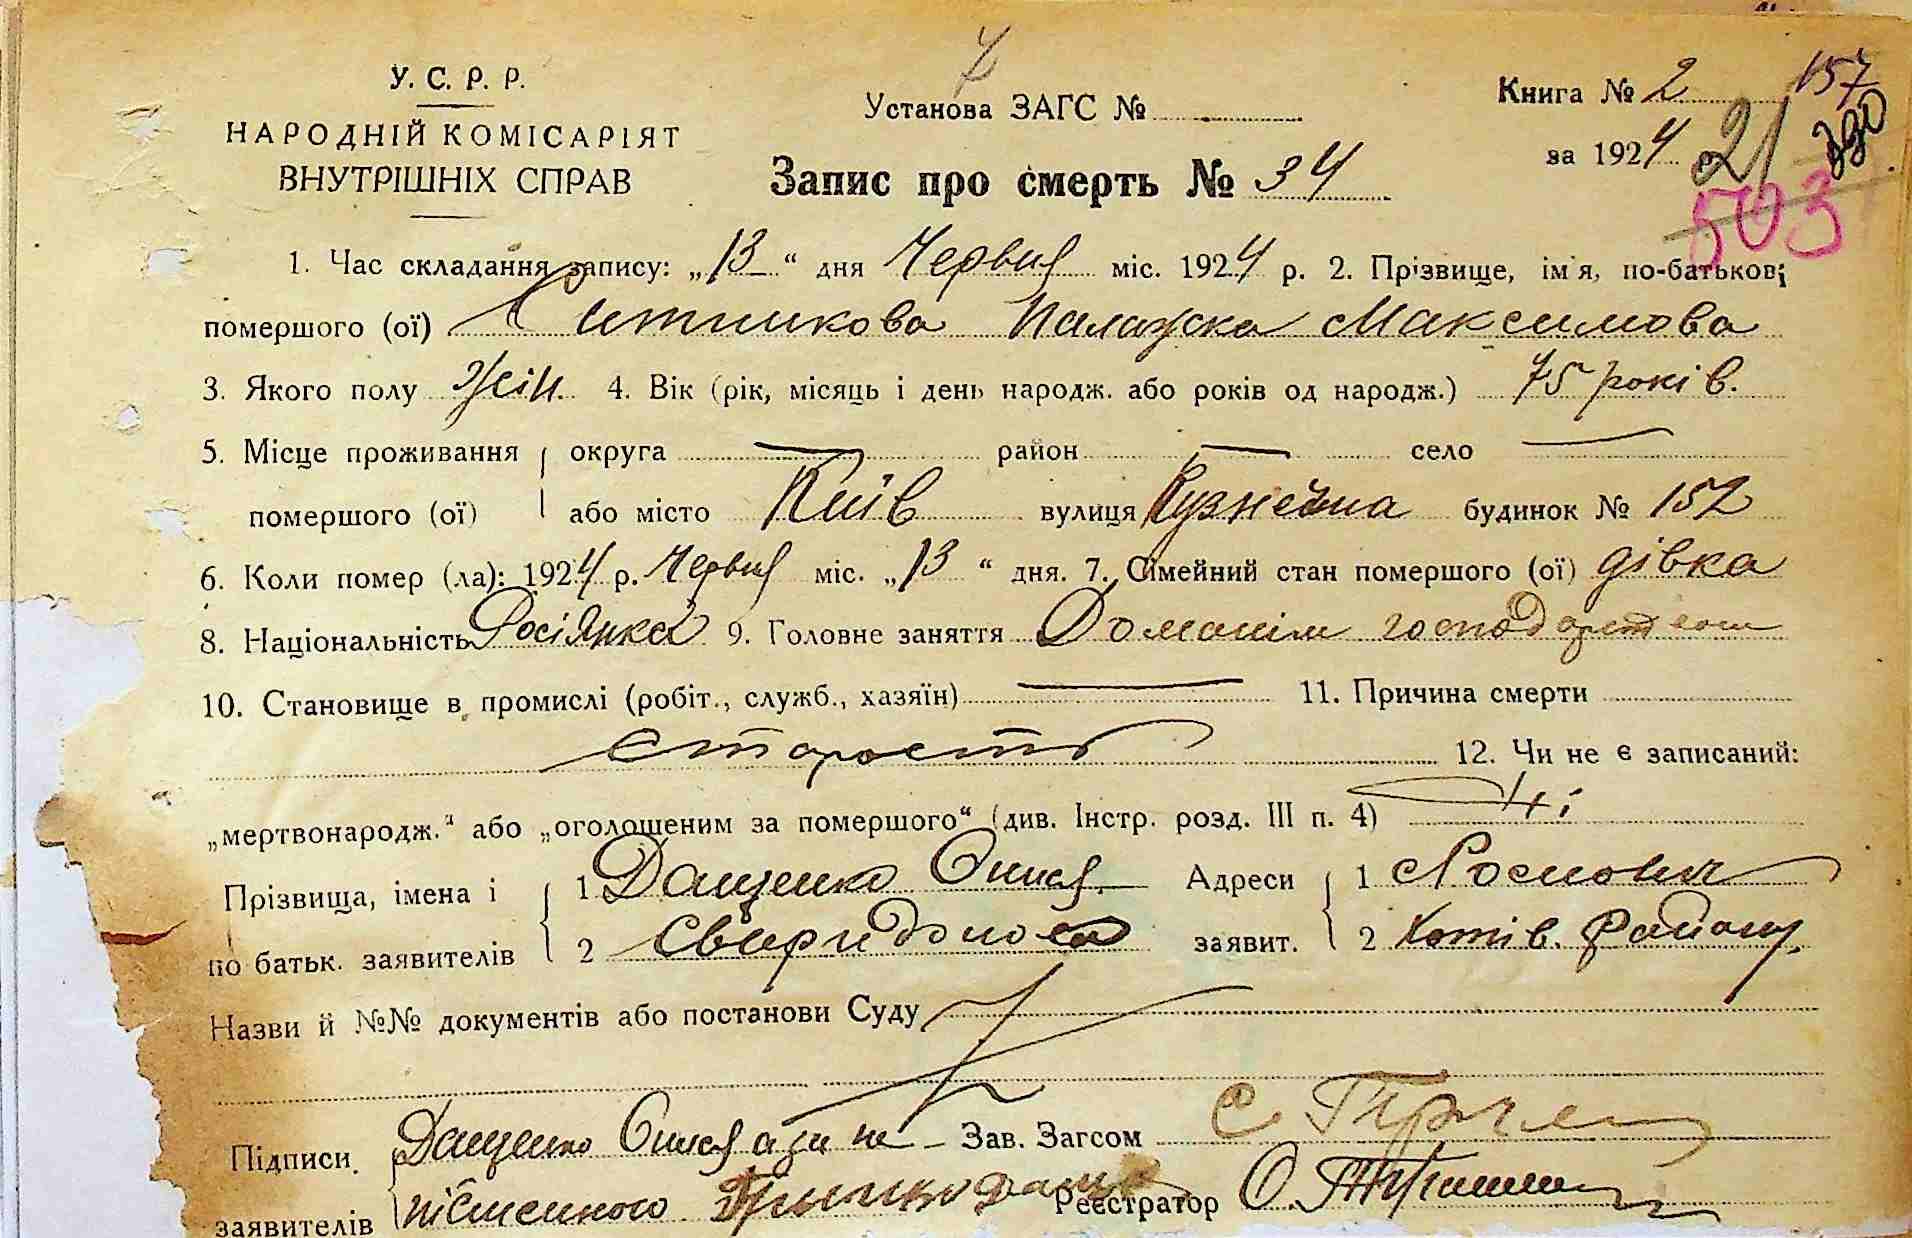 У. С. Р. Р.
НАРОДНІЙ КОМІСАРІЯТ
ВНУТРІШНІХ СПРАВ
7
Установа ЗАГС №
Книга № 2
157
за 1924 р.
21
503
Запис про смерть № 34
1. Час складання запису: „13“ дня Червня міс. 1924 р. 2. Прізвище, ім'я, по-батькові
помершого (ої) Ситникова Палажка Максимова
3. Якого полу жін. 4. Вік (рік, місяць і день народж. або років од народж.) 75 років.
5. Місце проживання округа — район — село —
помершого (ої) або місто Київ вулиця Кузнечна будинок № 152
6. Коли помер (ла): 1924 р. Червня міс. „13“ дня. 7. Сімейний стан помершого (ої) дівка
8. Національність Росіянка 9. Головне заняття Домашнім господарством
10. Становище в промислі (робіт., служб., хазяїн) — 11. Причина смерти
старость 12. Чи не є записаний:
„мертвонародж.“ або „оголошеним за помершого“ (див. Інстр. розд. III п. 4) Ні
Прізвища, імена і 1 Дащенко Адреси 1
по батьк. заявителів 2 Свиридонова заявит. 2 Хотів. Району.
Назви й №№ документів або постанови Суду
Підписи Дащенко Зав. Загсом
заявителів пісменного Реєстратор О.